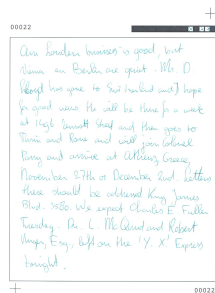 00022
Our London business is good, but
Vienna and Berlin are quiet. Mr. D.
Lloyd has gone to Switzerland and I hope
for good news. He will be there for a week
at 1496 Zermott Street and then goes to
Turin and Rome and will join Colonel
Parry and arrive at Athens, Greece,
November 27th or December 2nd. Letters
there should be addressed King James
Blvd. 3580. We expect Charles E. Fuller
Tuesday. Dr. L. McQuaid and Robert
Unger, Esq., left on the 'Y.X.' Express
tonight.
00022